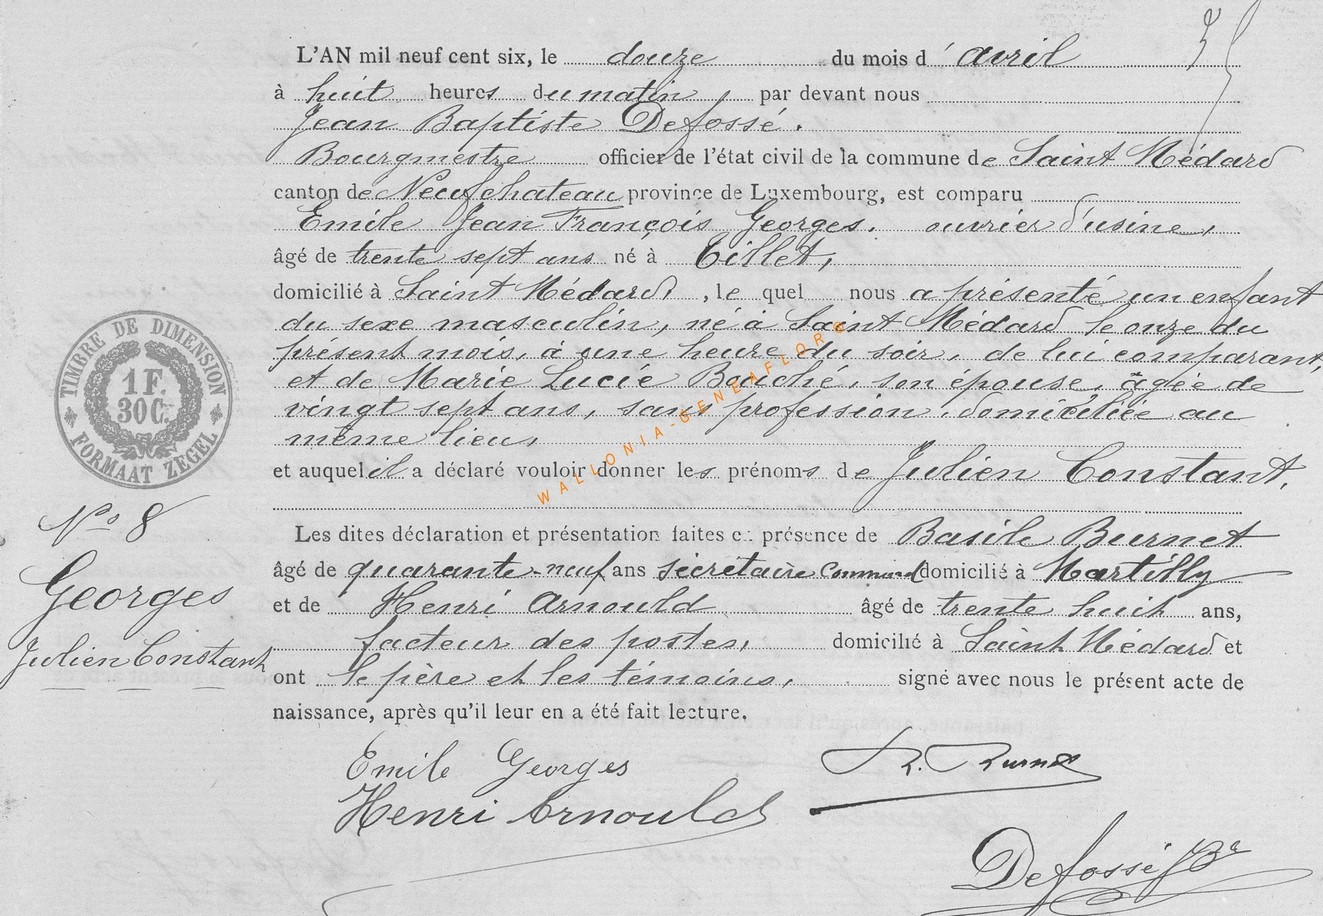 L'AN mil neuf cent six, le douze du mois d' avril
à huit heures du matin, par devant nous
Jean Baptiste Defossé.
Bourgmestre officier de l'état civil de la commune de Saint Médard
canton de Neufchateau province de Luxembourg, est comparu
Emile Jean François Georges. ouvrier d'usine,
âgé de trente sept ans né à Tillet,
domicilié à Saint Médard, le quel nous a présenté un enfant
du sexe masculin, né à Saint Médard le onze du
présent mois, à une heure du soir, de lui comparant,
et de Marie Lucie Bouché, son épouse, âgée de
vingt sept ans, sans profession, domiciliée au
même lieu,
et auquel il a déclaré vouloir donner les prénoms de Julien Constant,
Les dites déclaration et présentation faites en présence de Basile Burnet
âgé de quarante-neuf ans secrétaire communal domicilié à Martilly
et de Henri Arnould âgé de trente huit ans,
facteur des postes, domicilié à Saint Médard et
ont le père et les témoins, signé avec nous le présent acte de
naissance, après qu'il leur en a été fait lecture.
Emile Georges
Henri Arnould
Defossé
TIMBRE DE DIMENSION
1 F.
30 C.
FORMAAT ZEGEL
N° 8
Georges
Julien Constant
WALLONIA-GENEAFLORE